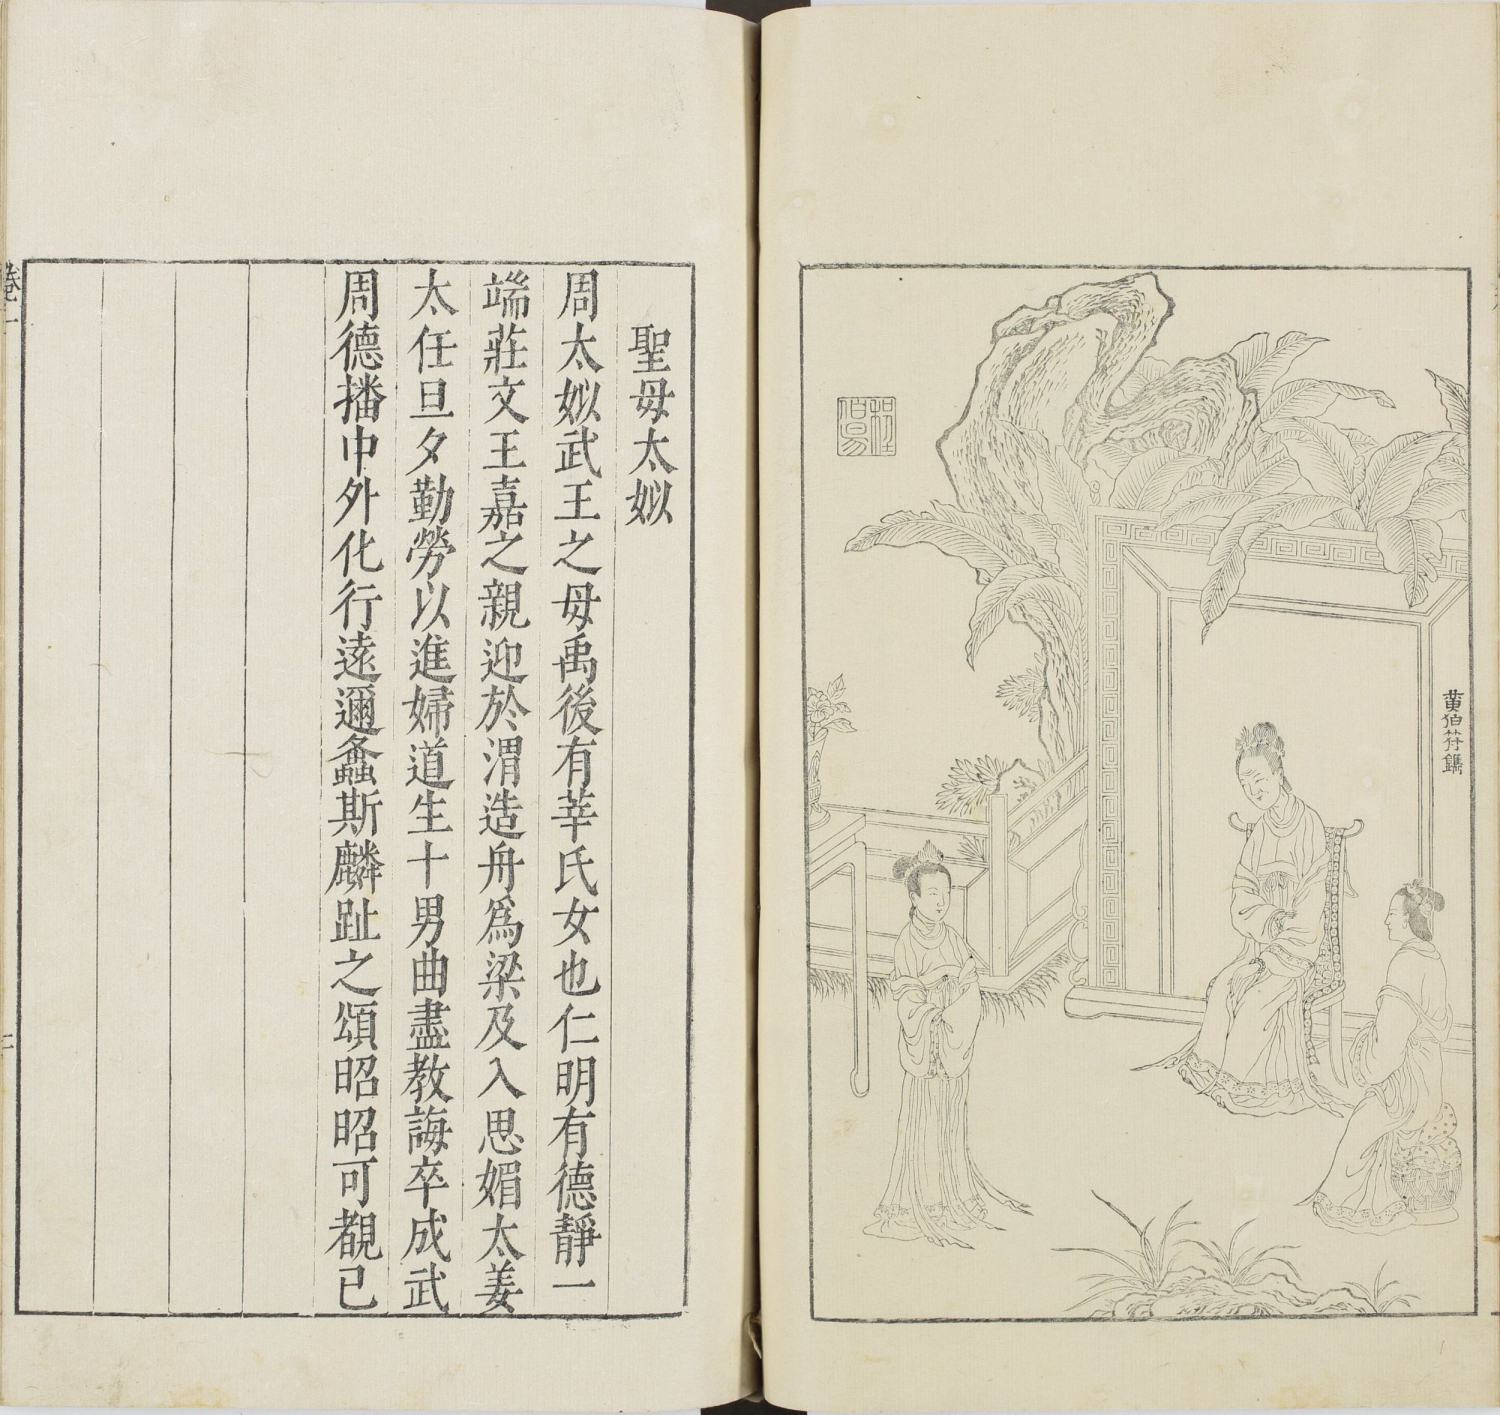 黄伯符鐫
程伯易
聖母太姒
周太姒武王之母禹後有莘氏女也仁明有德靜一
端莊文王嘉之親迎於渭造舟爲梁及入思媚太姜
太任旦夕勤勞以進婦道生十男曲盡教誨卒成武
周德播中外化行遠邇螽斯麟趾之頌昭昭可覩已
卷一
二